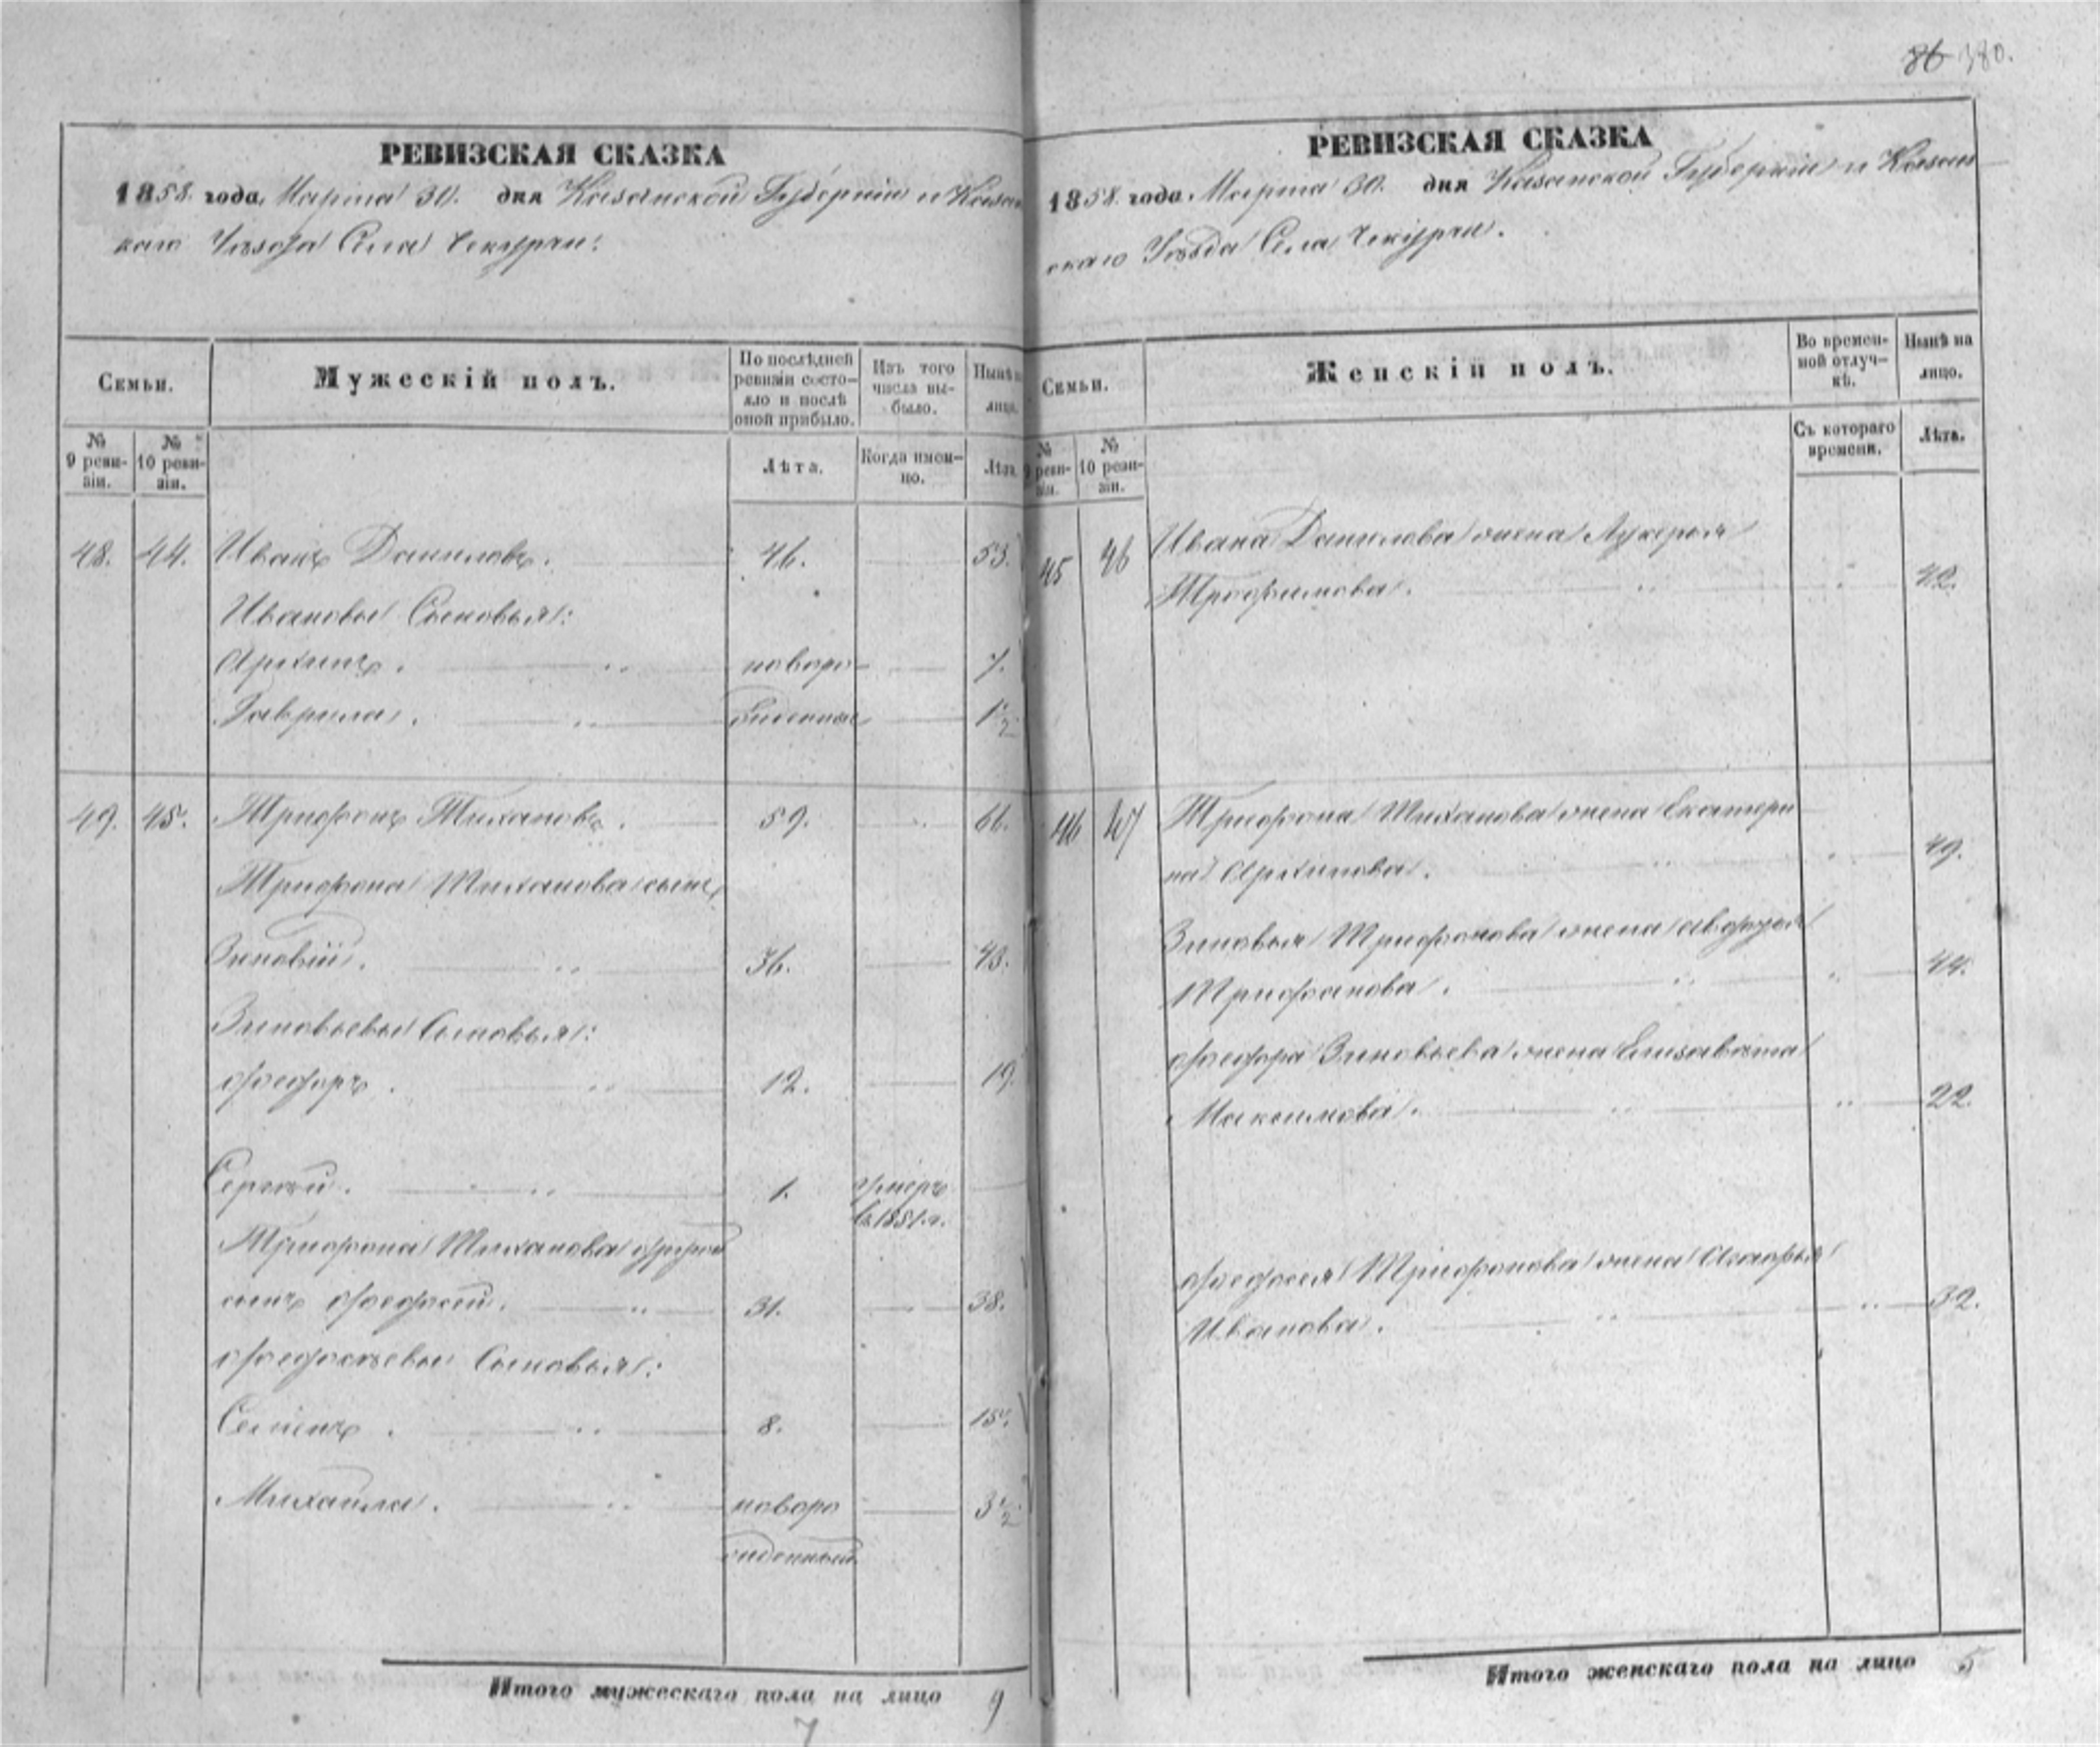 86 380.
РЕВИЗСКАЯ СКАЗКА
1858. года, Марта 30. дня Казанской Губерніи и Казан
скаго Уѣзда Села Чекурчи.
Семьи.
Мужескій полъ.
По послѣдней ревизіи состояло и послѣ оной прибыло.
Изъ того числа выбыло.
Нынѣ на лицо.
№ 9 ревизіи.
№ 10 ревизіи.
Лѣта.
Когда именно.
Лѣта.
48. 44. Иванъ Даниловъ. 46. 53.
Ивановы Сыновья:
Архипъ. новоро 7.
Гаврила. жденные 1 1/2
49. 45. Трифонъ Тихановъ. 59. 66.
Трифона Тиханова сынъ
Зиновій. 36. 43.
Зиновьевы Сыновья:
Ѳедоръ. 12. 19.
Сергѣй. 1. умеръ
в. 1851. г.
Трифона Тиханова другой
сынъ Ѳедосѣй. 31. 38.
Ѳедосѣевы Сыновья:
Семенъ. 8. 15.
Михайла. новоро 3 1/2
жденный
Итого мужескаго пола на лицо 9
7
РЕВИЗСКАЯ СКАЗКА
1858. года. Марта 30. дня Казанской Губерніи и Казан
скаго Уѣзда Села Чекурчи.
Семьи.
Женскій полъ.
Во временной отлучкѣ.
Нынѣ на лицо.
№ 9 ревизіи.
№ 10 ревизіи.
Съ котораго времени.
Лѣта.
45 46 Ивана Данилова жена Лукерья
Трофимова. 42.
46 47 Трифона Тиханова жена Екатери
на Архипова. 49.
Зиновья Трифонова жена Авдотья
Трифонова. 44.
Ѳедора Зиновьева жена Елизавета
Максимова. 22.
Ѳедосея Трифонова жена Агафья
Иванова. 32.
Итого женскаго пола на лицо 5